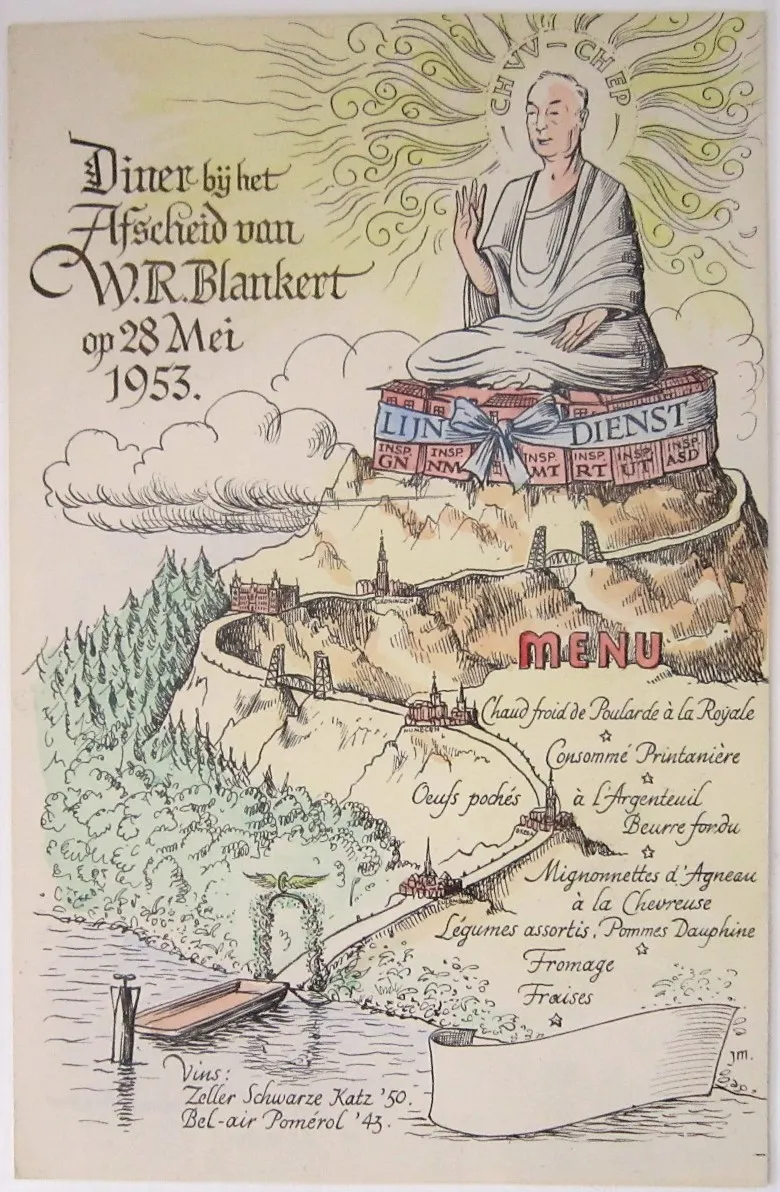 CH VV - CH EP
Diner bij het
Afscheid van
W.R. Blankert
op 28 Mei
1953.
LIJN DIENST
INSP. GN
INSP. NM
INSP. MT
INSP. RT
INSP. UT
INSP. ASD
GRONINGEN
MENU
Chaud froid de Poularde à la Royale
Consommé Printanière
Oeufs pochés à l'Argenteuil
Beurre fondu
Mignonnettes d'Agneau
à la Chevreuse
Légumes assortis, Pommes Dauphine
Fromage
Fraises
jm.
Vins:
Zeller Schwarze Katz '50.
Bel-air Pomérol '43.